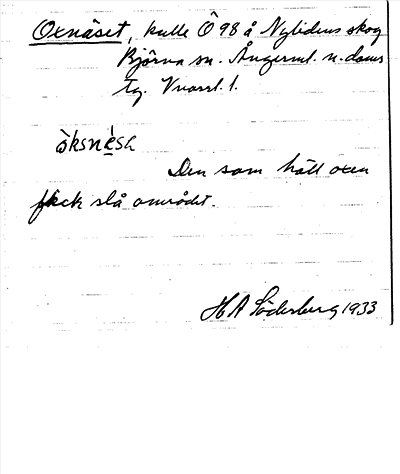 Oxnäset, kulle Ö 98 å Nylidens skog
Björna sn. Ångerml. n. doms
tg.
òksnèsh
Den som höll oxen
fick slå området.
H A Söderberg 1933